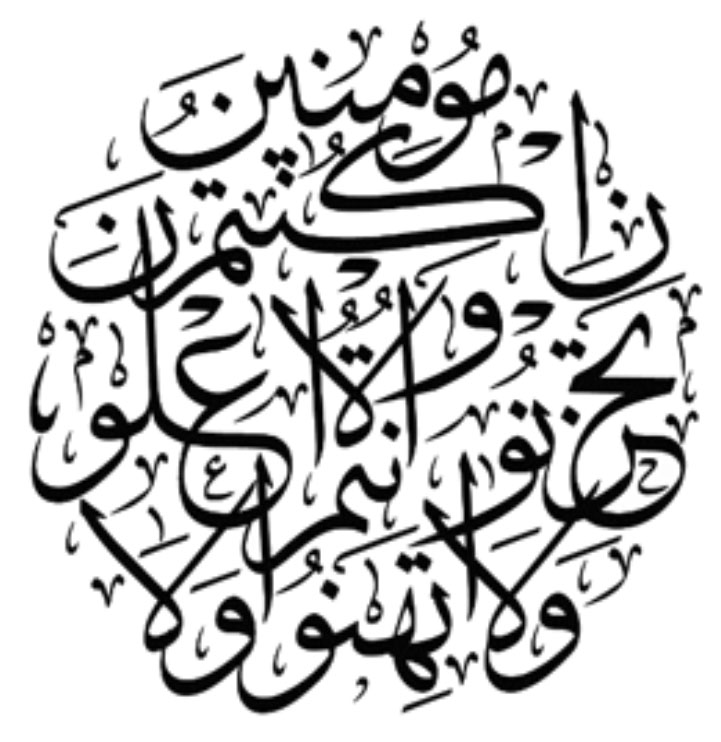 ولا تهنوا ولا تحزنوا وأنتم الأعلون إن كنتم مؤمنين